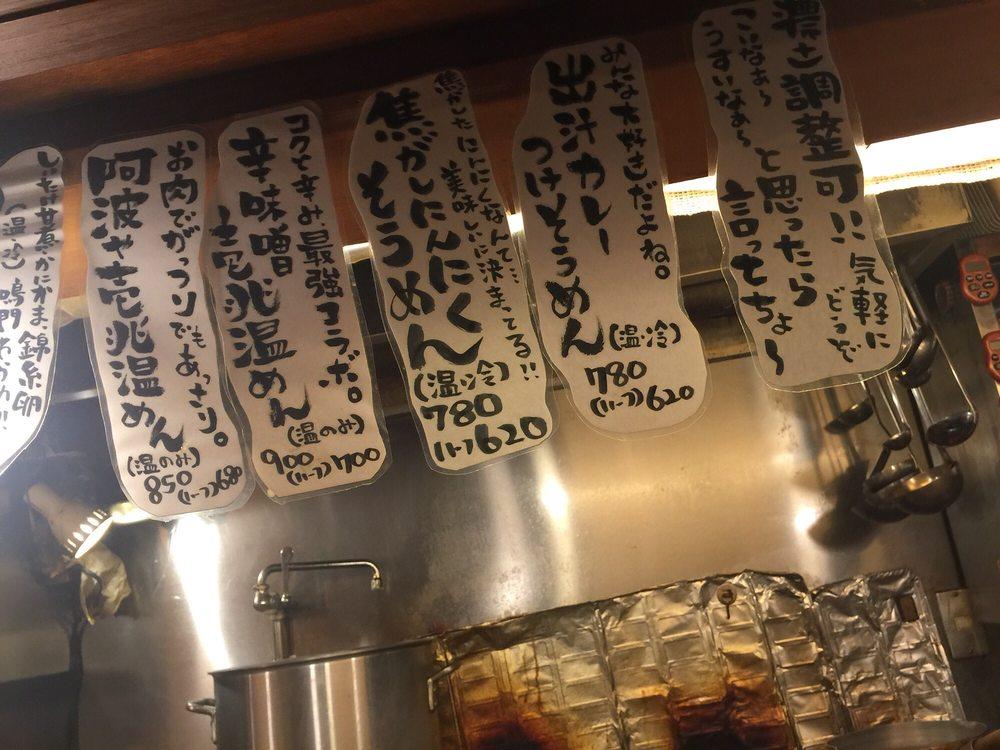 濃さ調整可!! 気軽に
どうぞ
こいなぁ〜
うすいなぁ〜と思ったら
言ってちょ〜
みんな大好きだよね。
出汁カレー
つけそうめん
(温・冷)
780
(ハーフ)620
焦がしたにんにくなんて…
美味しいに決まってる!!
焦がしにんにく
そうめん
(温・冷)
780
(ハーフ)620
コクと辛み最強コラボ。
辛味噌
壱兆温めん
(温のみ)
900
(ハーフ)700
お肉でがっつりでもあっさり。
阿波や壱兆温めん
(温のみ)
850
(ハーフ)680
しいたけ甘煮・かにかま・錦糸卵
(温・冷) 鳴門わかめ!!